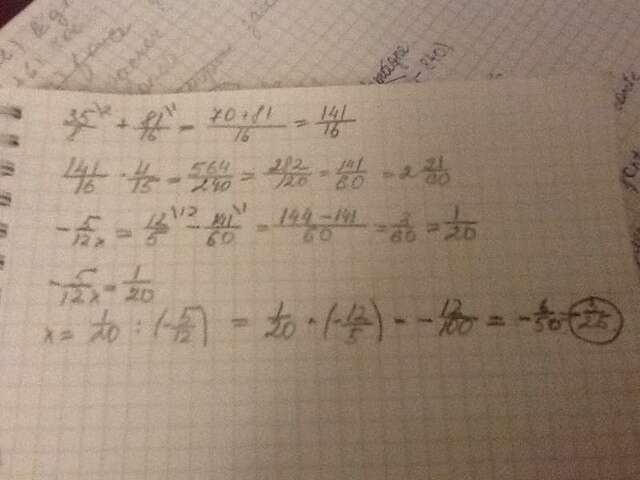 35/8 \2 + 81/16 \1 = 70+81/16 = 141/16
141/16 · 4/15 = 564/240 = 282/120 = 141/60 = 2 21/60
-5/12 x = 12/5 \12 - 141/60 \1 = 144-141/60 = 3/60 = 1/20
-5/12 x = 1/20
x = 1/20 : (-5/12) = 1/20 · (-12/5) = -12/100 = -6/50 = -3/25